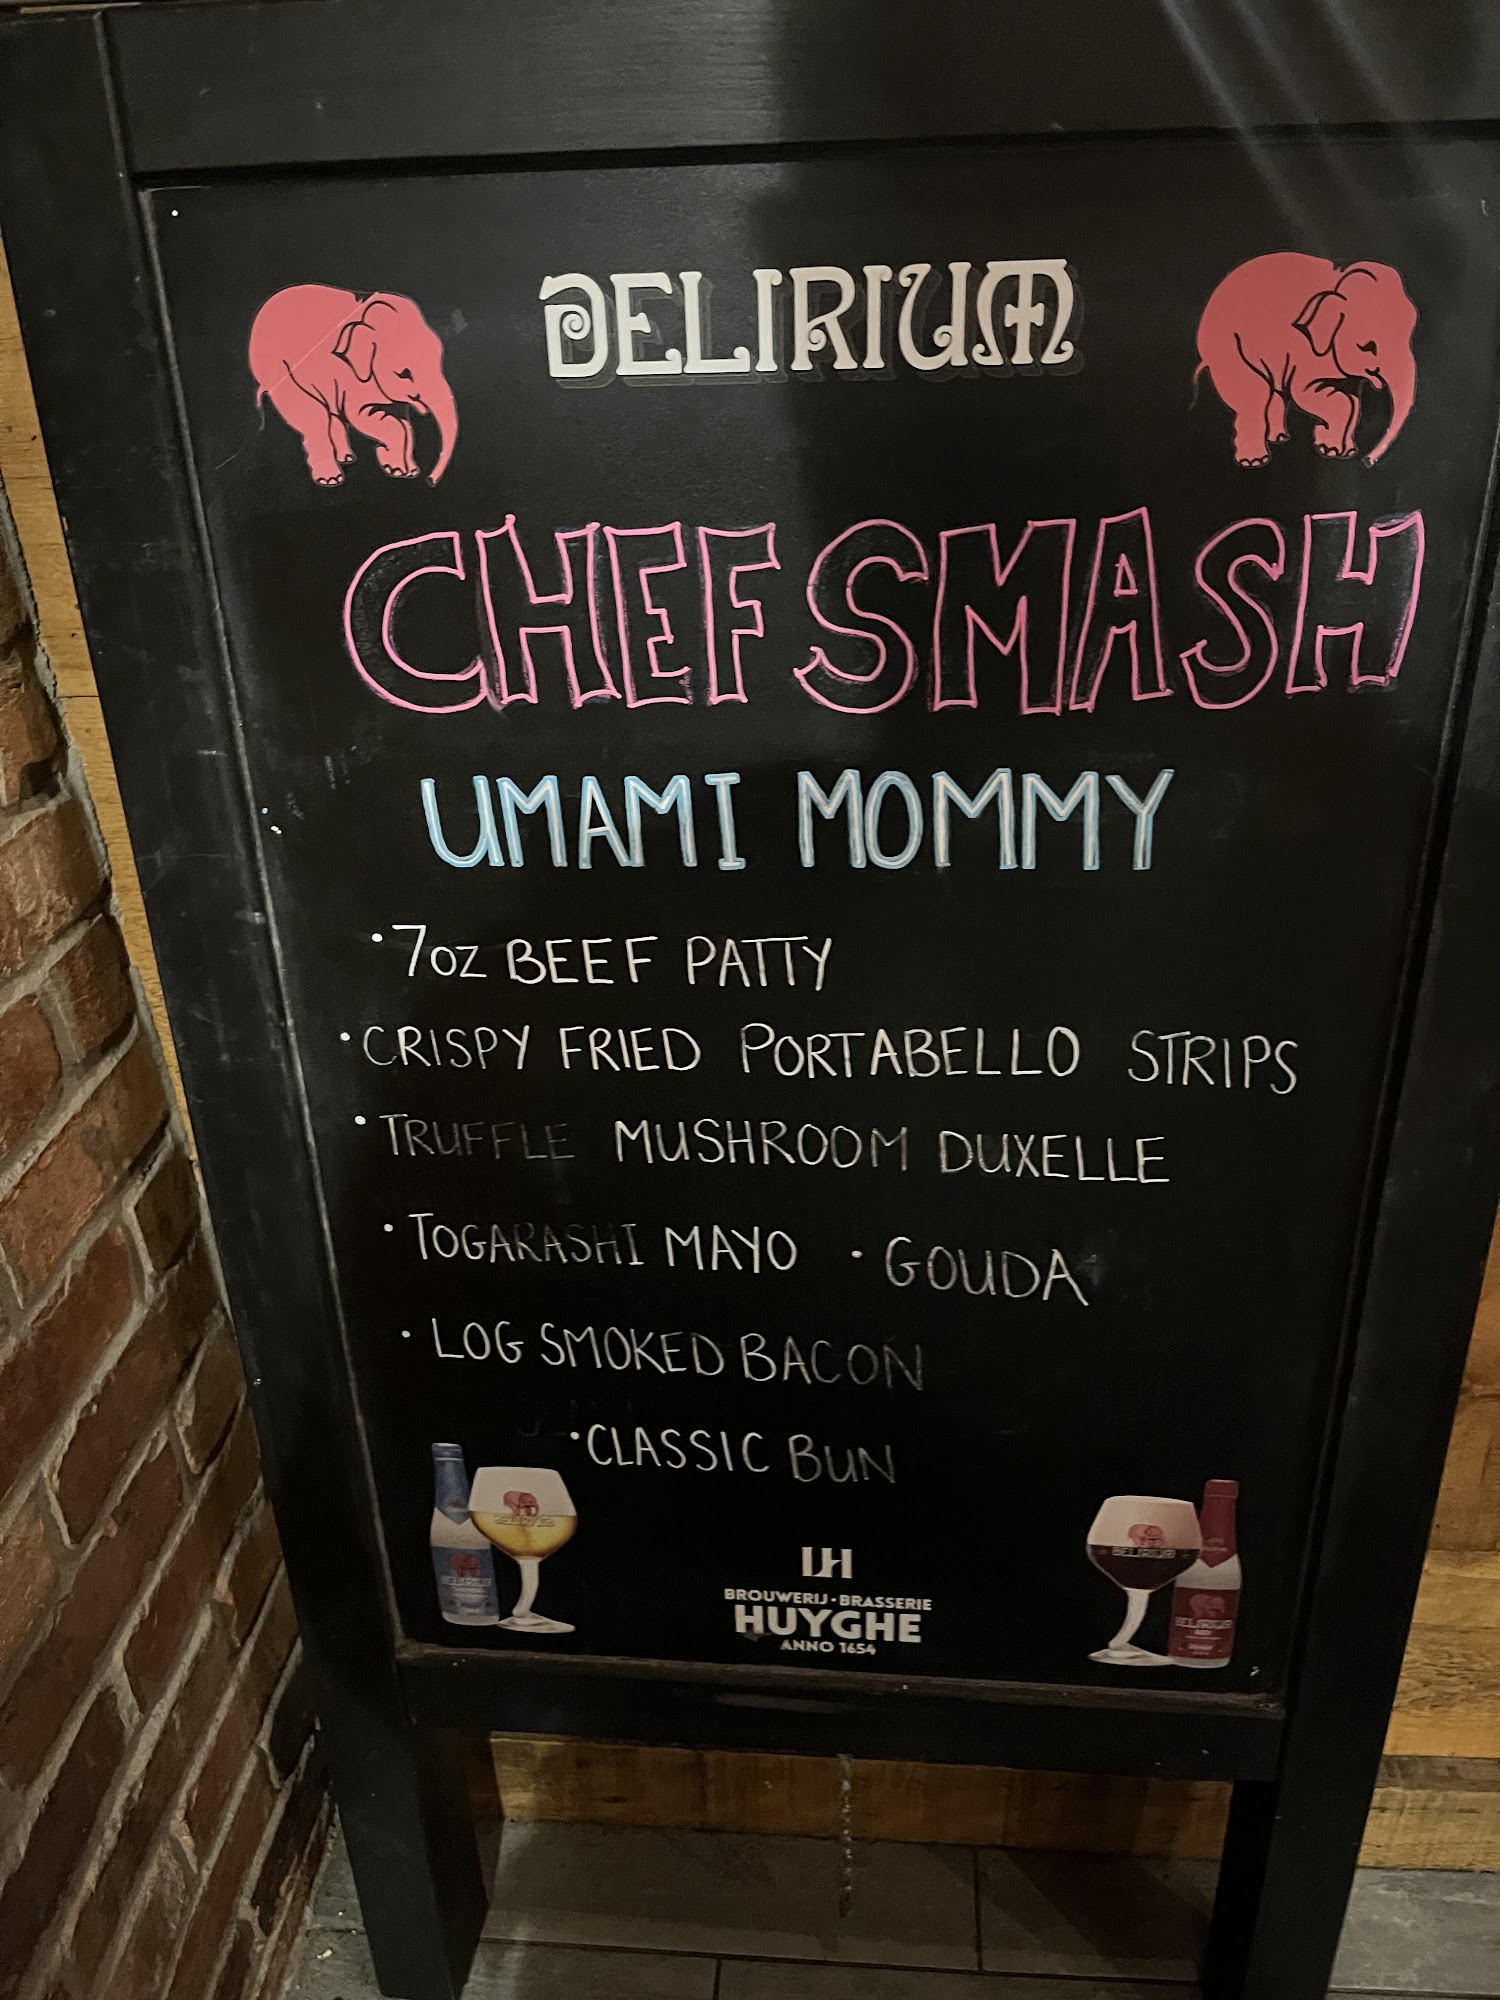 DELIRIUM
CHEF SMASH
UMAMI MOMMY
• 7oz BEEF PATTY
• CRISPY FRIED PORTABELLO STRIPS
• TRUFFLE MUSHROOM DUXELLE
• TOGARASHI MAYO • GOUDA
• LOG SMOKED BACON
• CLASSIC BUN
LH
BROUWERIJ • BRASSERIE
HUYGHE
ANNO 1654
DELIRIUM
DELIRIUM
DELIRIUM